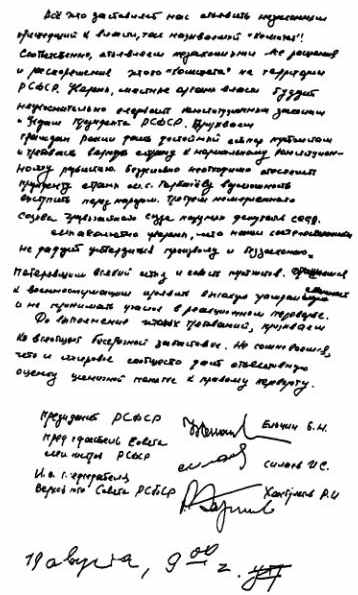 Всё это заставляет нас объявить незаконным
пришедший к власти, так называемый "комитет"!
Соответственно, объявляем незаконными все решения
и распоряжения этого "комитета" на территории
РСФСР. Уверены, местные органы власти будут
неукоснительно следовать конституционным законам
и Указам Президента РСФСР. Призываем
граждан России дать достойный ответ путчистам
и требовать вернуть страну к нормальному конституцион-
ному развитию. Безусловно необходимо обеспечить
президенту страны М.С. Горбачёву возможность
выступить перед народом. Требуем немедленного
созыва Чрезвычайного съезда народных депутатов СССР.
Мы абсолютно уверены, что наши соотечественники
не дадут утвердиться произволу и беззаконию
потерявших всякий стыд и совесть путчистов. Обращаемся
к военнослужащим проявить высокую гражданственность
и не принимать участия в реакционном перевороте.
До выполнения этих требований, призываем
ко всеобщей бессрочной забастовке. Не сомневаемся,
что и мировое сообщество даст объективную
оценку циничной попытке к правому перевороту.
Президент РСФСР Ельцин Б.Н.
Председатель Совета
министров РСФСР Силаев И.С.
И.о. председателя
Верховного Совета РСФСР Хасбулатов Р.И
19 августа, 9 00 г.